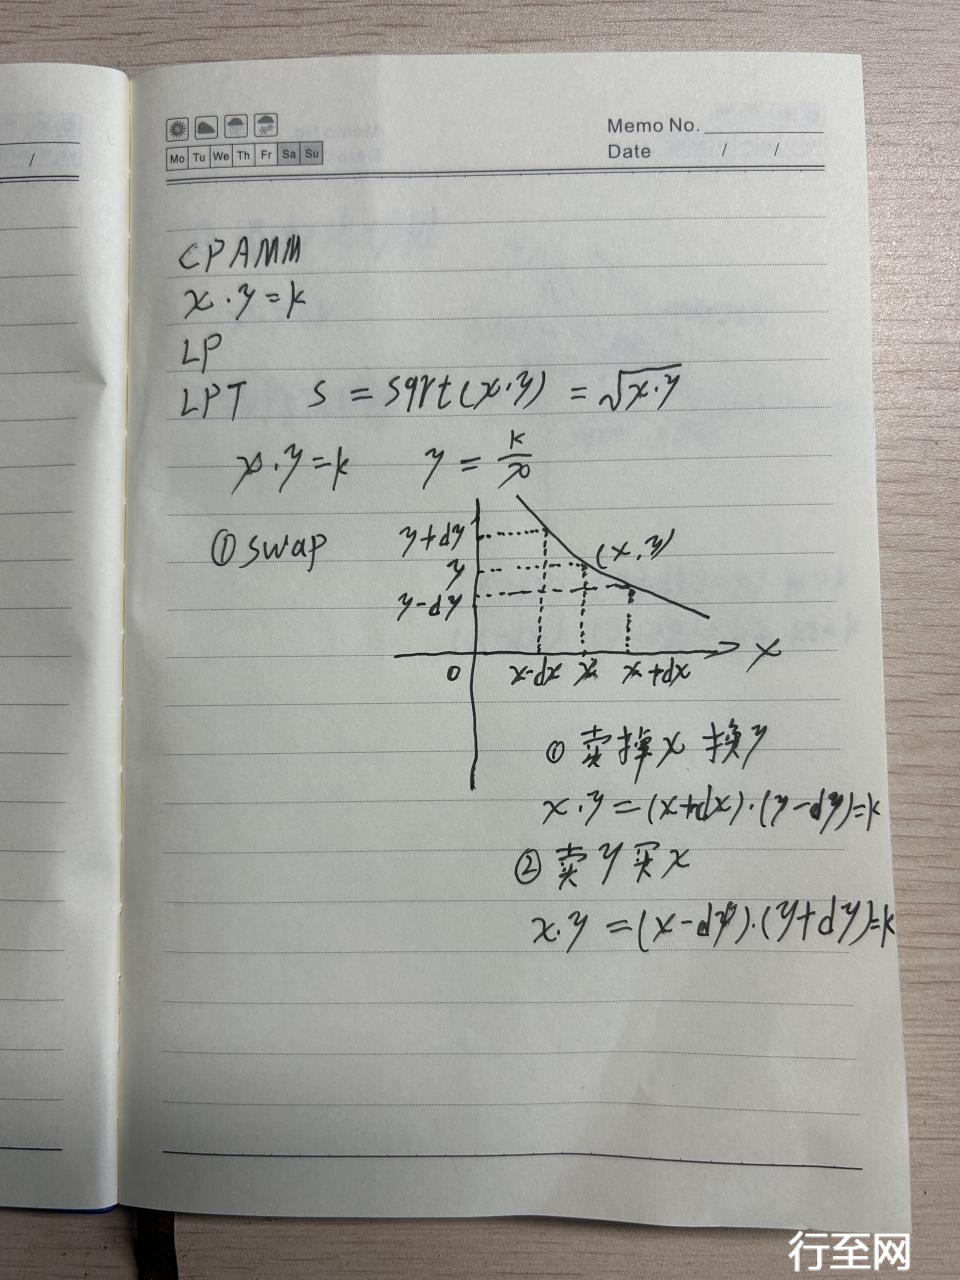 Mo Tu We Th Fr Sa Su
Memo No.
Date / /
/
CPAMM
x·y=k
LP
LPT S = sqrt(x·y) = √x·y
x·y=k y = k/x
① swap
y+dy
y
y-dy
(x,y)
0 x-dx x x+dx X
① 卖掉x 换y
x·y=(x+dx)·(y-dy)=k
② 卖y买x
x·y=(x-dx)·(y+dy)=k
行至网